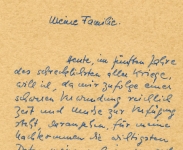 Meine Familie.
Heute, im fünften Jahre
des schrecklichsten aller Kriege,
will ich, da mir zufolge einer
schweren Verwundung reichlich
Zeit und Muße zur Verfügung
steht, darangehen, für meine
Nachkommen die wichtigsten